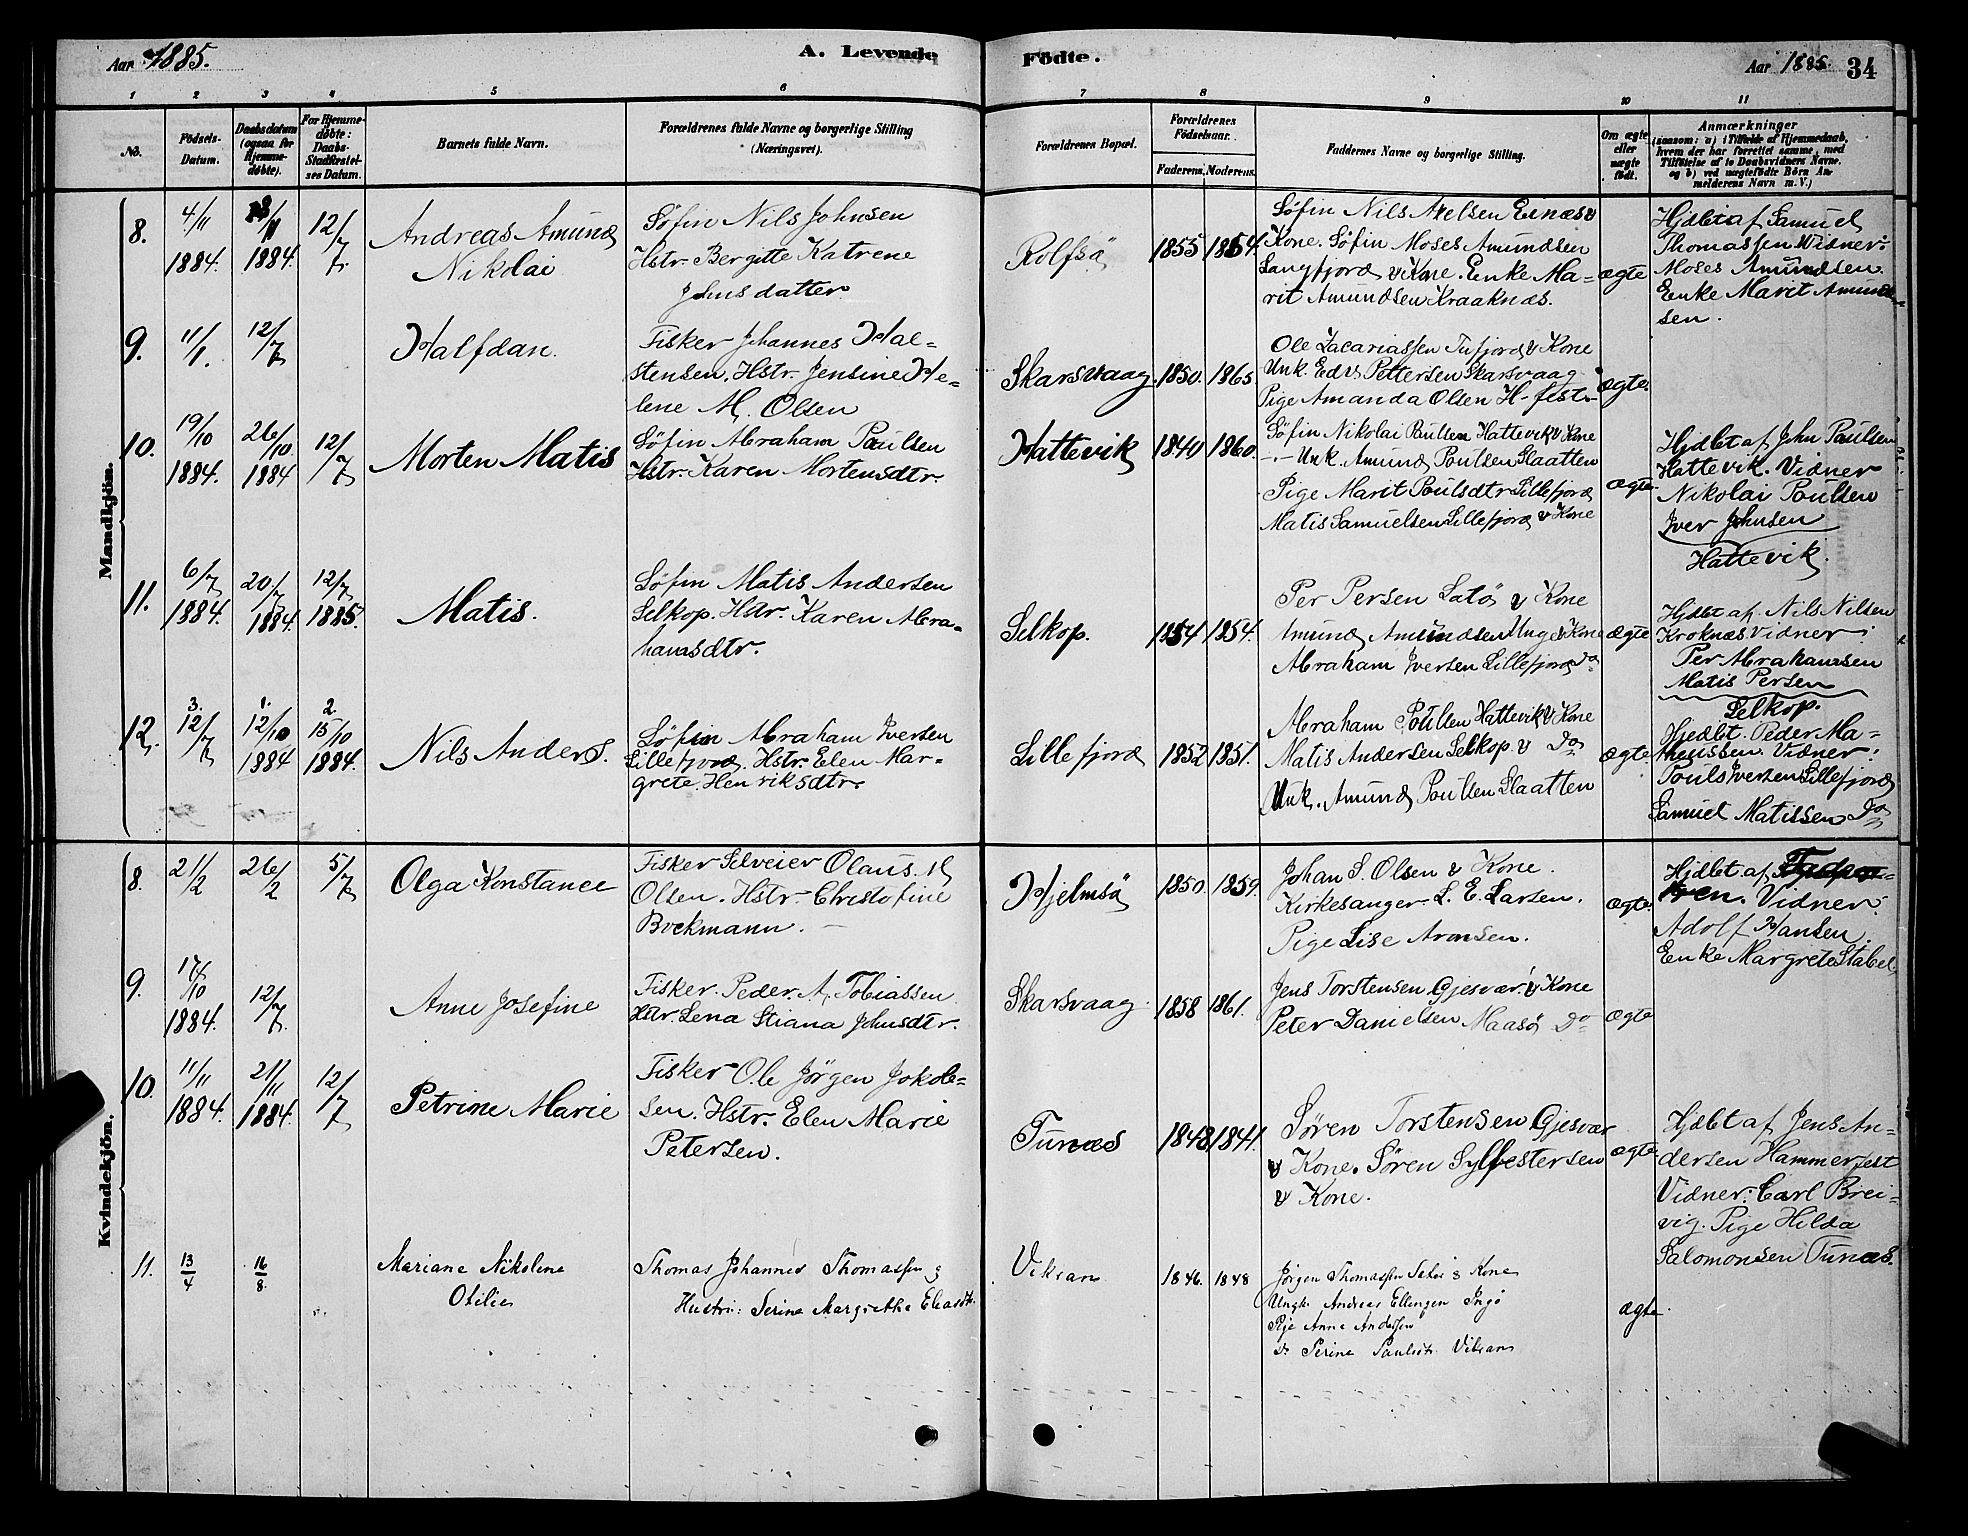 Aar 1885.
A. Levende
Födte.
Aar 1885.
34
1 2 3 4 5 6 7 8 9 10 11
No.
Födsels-
Datum.
Daabsdatum
(ogsaa for
Hjemme-
döbte).
For Hjemme-
döbte:
Daabs-
Stadfæstel-
ses Datum.
Barnets fulde Navn.
Forældrenes fulde Navne og borgerlige Stilling
(Næringsvei).
Forældrenes Bopæl.
Forældrenes
Födselsaar.
Faderens. Moderens.
Faddernes Navne og borgerlige Stilling.
Om ægte
eller
uægte
födt.
Anmærkninger
(saasom: a) i Tilfælde af Hjemmedaab,
hvem der har forrettet samme, med
Tilföielse af to Daabsvidners Navne.
og b) ved uægtefödte Börn An-
melderens Navn m. V.)
Mandkjön.
8.
4/11
1884.
1884.
12/7
Andreas Amund
Nikolai
Söfin Nils Johnsen
Hstr. Bergitte Katrene
Johnsdatter
Rolfsö
1855 1854.
Söfin Nils Axelsen Eenæs &
Kone. Söfin Moses Amundsen
Langfjord & Kone. Enke Ma-
rit Amundsen Kraaknæs.
ægte
Hjdbt af Samuel
Thomassen. Vidner:
Moses Amundsen
Enke Marit Amund-
sen.
9.
11/1.
12/7
Halfdan.
Fisker Johannes Hal-
stensen. Hstr. Jensine He-
lene M. Olsen
Skarsvaag
1850. 1865.
Ole Zacariassen Tufjord & Kone
Unk. Edv. Pettersen Skarsvaag
Pige Amanda Olsen H-fest.
ægte.
10.
19/10
1884.
26/10
1884
12/7
Morten Matis
Söfin Abraham Paulsen
Hstr. Karen Mortensdtr.
Hattevik
1840 1860.
Söfin Nikolai Paulsen Hattevik & Kone
-"- Unk. Amund Poulsen Slaatten
Pige Marit Poulsdtr Lillefjord
Matis Samuelsen Lillefjord & Kone
ægte.
Hjdbt af John Paulsen
Hattevik. Vidner
Nikolai Poulsen
Iver Johnsen
Hattevik.
11.
6/7
1884.
20/7
1884.
12/7
1885.
Matis.
Söfin Matis Andersen
Selkop. Hstr. Karen Abra-
hamsdtr.
Selkop.
1854 1854.
Per Persen Latö & Kone
Amund Amundsen Unge & Kone
Abraham Iversen Lillefjord Do
ægte
Hjdbt af. Nils Nilsen
Kroknæs Vidner:
Per Abrahamsen
Matis Persen
Selkop.
12.
3.
12/7
1.
12/10
1884
2.
15/10
1884.
Nils Anders.
Söfin Abraham Iversen
Lillefjord. Hstr. Elen Mar-
grete. Henriksdtr.
Lillefjord
1852 1851.
Abraham Poulsen Hattevik & Kone
Matis Andersen Selkop. & Do
Unk. Amund Poulsen Slaatten
ægte
Hjedbt. Peder Ma-
theussen. Vidner:
Pouls Iversen Lillefjord
Samuel Matissen Do
Kvindekjön.
8.
21/2
26/2
5/7
Olga Konstance
Fisker Selveier Olaus. M
Olsen. Hstr. Christofine
Brekmann.
Hjelmsö
1850. 1859.
Johan S. Olsen & Kone.
Kirkesanger. L. E. Larsen.
Pige Lise Aronsen.
ægte.
Hjdbt af
Vidner:
Adolf Hansen
Enke Margrete Stabel
9.
17/10
1884.
12/7
Anne Josefine
Fisker. Peder. A. Tobiassen
Hstr. Lena Stiana Johnsdtr.
Skarsvaag.
1858 1861.
Jens Torstensen Gjesvær. & Kone
Peter Danielsen Maasö Do
ægte
10.
11/11
1884.
21/11
1884.
12/7
Petrine Marie
Fisker Ole Jörgen Jokob-
sen. Hstr. Elen Marie
Petersen.
Tunæs
1848 1841.
Sören Torstensen Gjesvær
& Kone. Sören Sylfestersen
& Kone.
ægte
Hjdbt af Jens An-
dersen Hammerfest
Vidner: Carl Brei-
vig. Pige Hilda
Salomonsen Tunæs.
11.
13/4
16/8
Mariane Nikoline
Otilie
Thomas Johannes Thomassen &
Hustru: Serine Margrethe Eliasdtr.
Viksan
1846. 1848
Jörgen Thomassen & Kone
Ungk. Andreas Ellingsen Ingö
Pige Anne Andersen
Do Serine Paulsdtr Viksan
ægte.